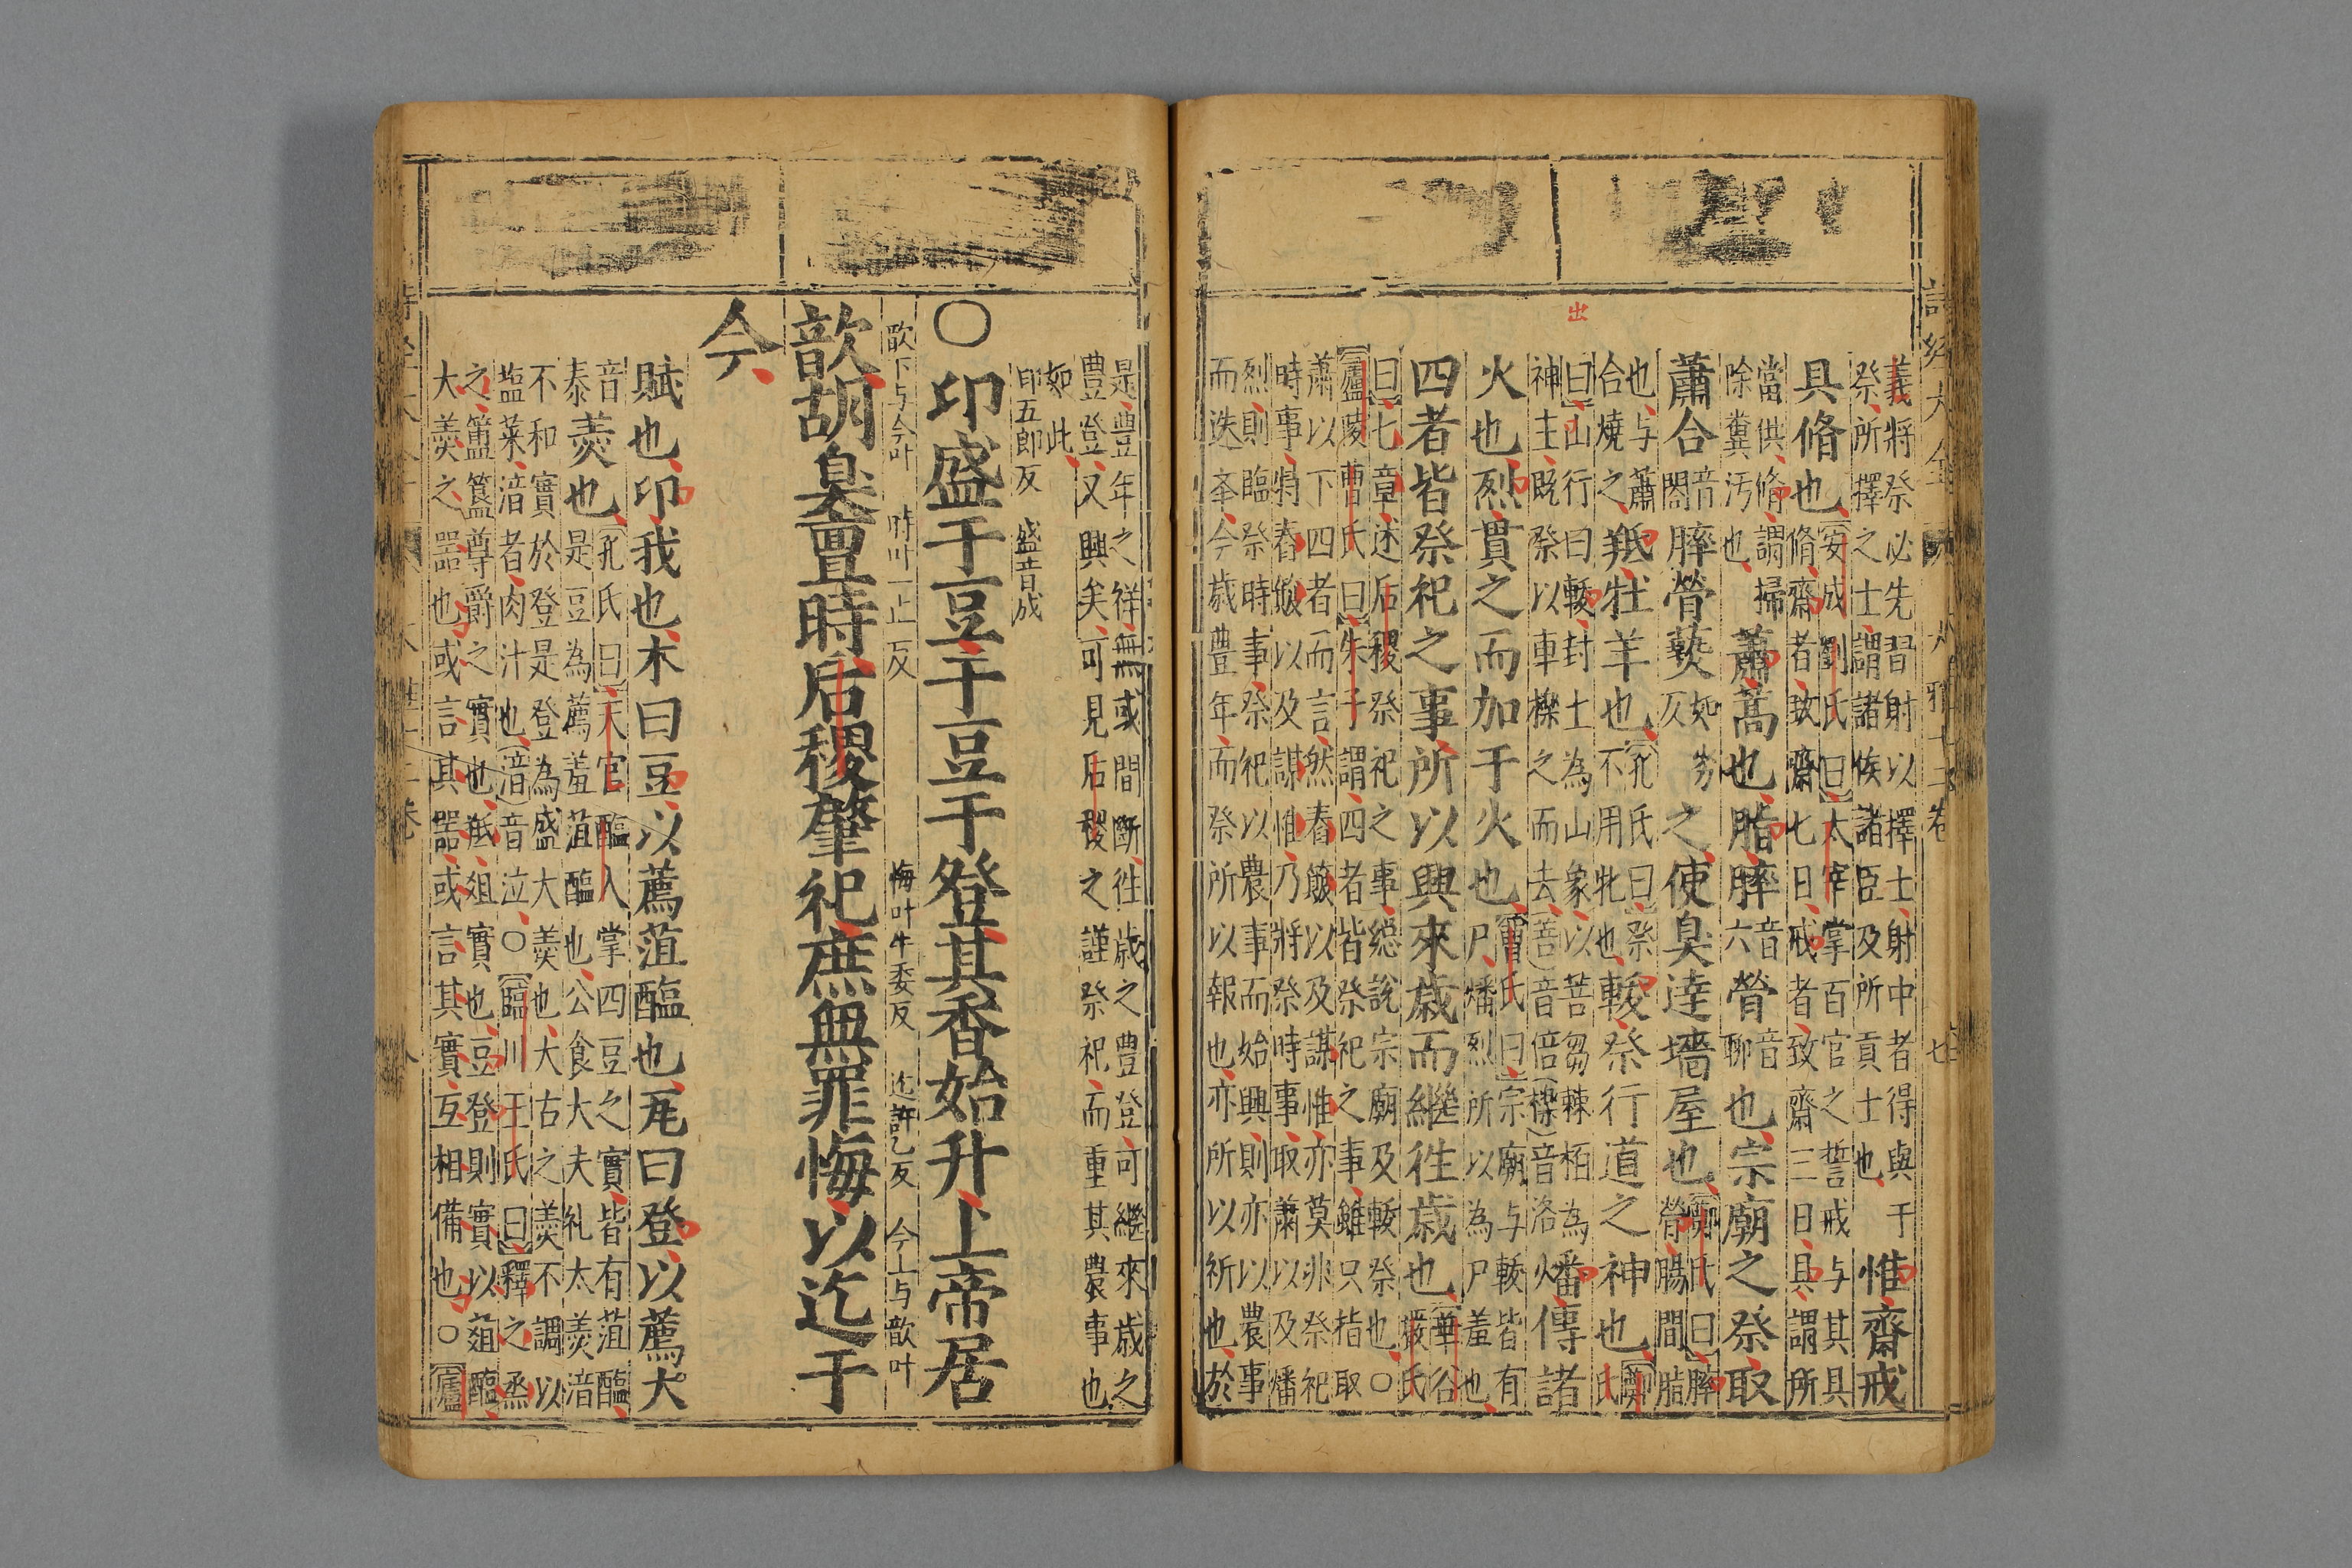 詩經大全 大雅十七卷 七
義將祭必先習射以擇士射中者得與于
祭所擇之士謂諸侯諸臣及所貢士也
惟齋戒
具脩也
安成劉氏曰太宰掌百官之誓戒与其具
脩齋者致齋七日戒者致齋三日具謂所
當供脩謂掃
除糞汚也
蕭蒿也脂膟
音六
膋
音聊
也宗廟之祭取
蕭合
音閤
膟膋爇
如劣反
之使臭達墻屋也
鄭氏曰膟
膋腸間脂
也与蕭
合燒之
羝牡羊也
孔氏曰祭
不用牝也
軷祭行道之神也
鄭氏
曰山行曰軷封土為山象以菩芻棘栢為
神主既祭以車轢之而去菩音倍轢音洛
燔傳諸
火也烈貫之而加于火也
曹氏曰宗廟与軷皆有
尸燔烈所以為尸羞也
四者皆祭祀之事所以興來歲而継徃歲也
華谷嚴氏
曰七章述后稷祭祀之事総說宗廟及軷祭也○
廬陵曹氏曰朱子謂四者皆祭祀之事雖只指取
蕭以下四者而言然舂簸以及謀惟亦莫非祭祀
時事特舂簸以及謀惟乃將祭時事取蕭以及燔
烈則臨祭時事祭祀以農事而始興則亦以農事
而迭奉今歲豊年而祭所以報也亦所以祈也於
是豊年之祥無或間断徃歲之豊登可継來歲之
豊登又興矣可見后稷之謹祭祀而重其農事也
如此
○卬盛于豆于豆于登其香始升上帝居
卬五郎反 盛音成
歆胡臭亶時后稷肇祀庶無罪悔以迄于
歆下与今叶 時叶上止反 悔叶牛委反 迄許乞反 今上与歆叶
今
賦也卬我也木曰豆以薦菹醢也瓦曰登以薦大
音泰
羹也
孔氏曰天官醢人掌四豆之實皆有菹醢
是豆為薦羞菹醢也公食大夫礼太羹湆
不和實於登是登為盛大羹也大古之羹不調以
塩菜湆者肉汁也湆音泣○臨川王氏曰釋之烝
之簠簋尊爵之實也羝俎實也豆登則實以菹醢
大羹之噐也或言其噐或言其實互相備也○廬